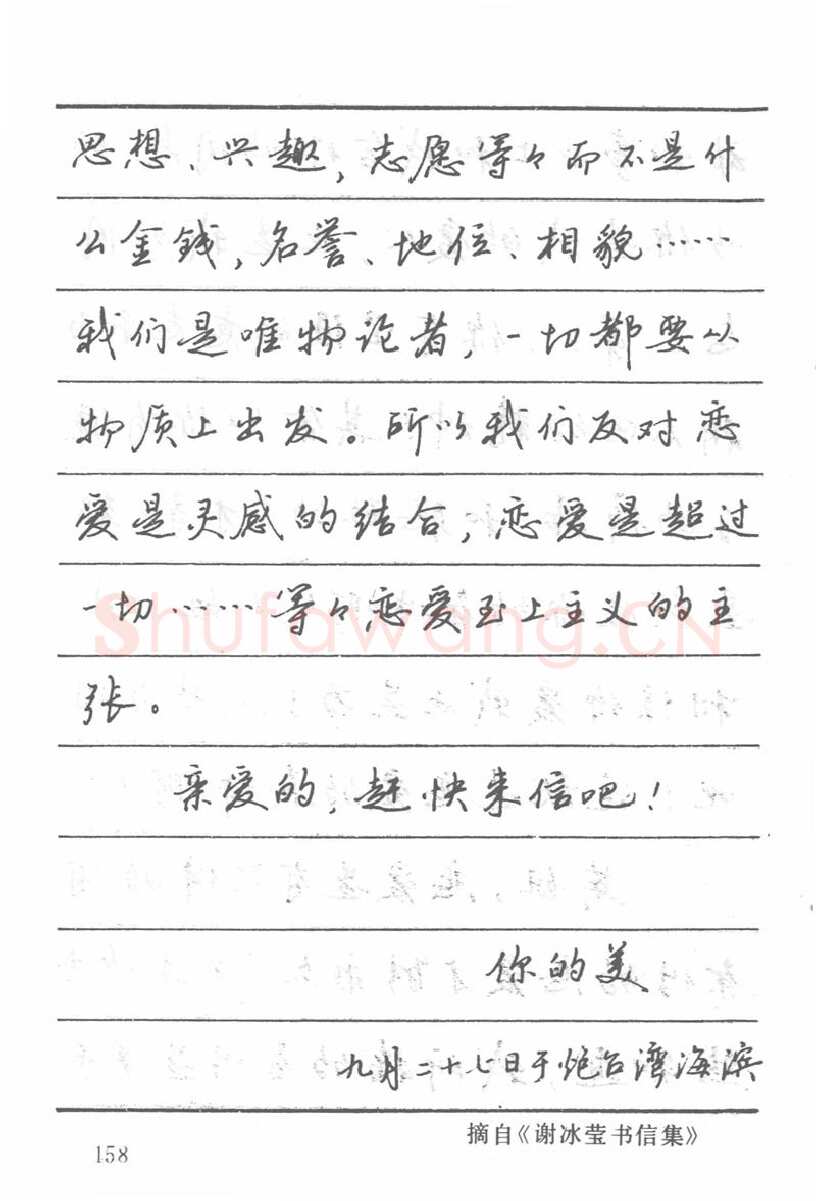 思想、兴趣，志愿等々而不是什
么金钱，名誉、地位、相貌……
我们是唯物论者，一切都要从
物质上出发。所以我们反对恋
爱是灵感的结合，恋爱是超过
一切……等々恋爱至上主义的主
张。
亲爱的，赶快来信吧！
你的美
九月二十七日于炮台湾海滨
摘自《谢冰莹书信集》
158
Shufawang.CN